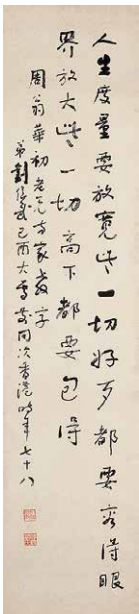 人生度量要放寬些一切好歹都要容得眼
界放大些一切高下都要包得
周翁華初老兄方家教字
弟劉侯武己酉大雪香港時年七十八